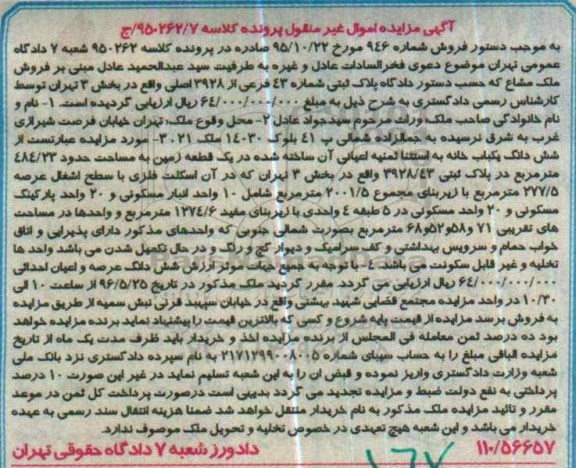 آگهی مزایده اموال غیر منقول پرونده کلاسه ۹۵۰۲۶۲/۷/ج
به موجب دستور فروش شماره ۹۴۶ مورخ ۹۵/۱۰/۲۲ صادره در پرونده کلاسه ۹۵۰۲۶۲ شعبه ۷ دادگاه
عمومی تهران موضوع دعوی فخرالسادات عادل و غیره به طرفیت سید عبدالحمید عادل مبنی بر فروش
ملک مشاع که حسب دستور دادگاه پلاک ثبتی شماره ۴۳ فرعی از ۳۹۲۸ اصلی واقع در بخش ۳ تهران توسط
کارشناس رسمی دادگستری به شرح ذیل به مبلغ ۶۴/۰۰۰/۰۰۰/۰۰۰ ریال ارزیابی گردیده است. ۱- نام و
نام خانوادگی صاحب ملک وراث مرحوم سیدجواد عادل ۲- محل وقوع ملک: تهران خیابان فرصت شیرازی
غرب به شرق نرسیده به جمالزاده شمالی پ ۴۱ بلوک ۱۴۰۳۰ ملک ۳۰۲۱- مورد مزایده عبارتست از
شش دانگ یکباب خانه به استثنا ثمنیه اعیانی آن ساخته شده در یک قطعه زمین به مساحت حدود ۴۸۴/۲۳
مترمربع در پلاک ثبتی ۳۹۲۸/۴۳ واقع در بخش ۳ تهران که در آن اسکلت فلزی با سطح اشغال عرصه
۲۷۷/۵ مترمربع با زیربنای مجموع ۲۰۰۱/۵ مترمربع شامل ۱۰ واحد انبار مسکونی و ۲۰ واحد پارکینگ
مسکونی و ۲۰ واحد مسکونی در ۵ طبقه ۴ واحدی با زیربنای مفید ۱۲۷۴/۶ مترمربع و واحدها در مساحت
های تقریبی ۷۱ و ۵۸ و ۵۲ و ۶۸ مترمربع بصورت شمالی جنوبی که واحدهای مذکور دارای پذیرایی و اتاق
خواب حمام و سرویس بهداشتی و کف سرامیک و دیوار گچ و رنگ و در حال تکمیل شدن می باشد واحد ها
تخلیه و غیر قابل سکونت می باشند. ۴- با توجه به جمیع جهات موثر ارزش شش دانگ عرصه و اعیان احداثی
۶۴/۰۰۰/۰۰۰/۰۰۰ ریال ارزیابی می گردد. مقرر گردید ملک مذکور در تاریخ ۹۶/۵/۲۵ از ساعت ۱۰ الی
۱۰/۳۰ در واحد مزایده مجتمع قضایی شهید بهشتی واقع در خیابان سپهبد قرنی نبش سمیه از طریق مزایده
به فروش برسد مزایده از قیمت پایه شروع و کسی که بالاترین قیمت را پیشنهاد نماید برنده مزایده خواهد
بود ده درصد ثمن معامله فی المجلس از برنده مزایده اخذ و خریدار باید ظرف مدت یک ماه از تاریخ
مزایده الباقی مبلغ را به حساب سیبای شماره ۲۱۷۱۲۹۹۰۰۸۰۰۵ به نام سپرده دادگستری نزد بانک ملی
شعبه وزارت دادگستری واریز نموده و قبض ان را به این شعبه تسلیم نماید در غیر این صورت ۱۰ درصد
پرداختی به نفع دولت ضبط و مزایده تجدید می گردد بدیهی است درصورت پرداخت کل ثمن در موعد
مقرر و تائید مزایده ملک مذکور به نام خریدار منتقل خواهد شد ضمنا هزینه انتقال سند رسمی به عهده
خریدار می باشد و این شعبه هیچ تعهدی در خصوص تخلیه و تحویل ملک موصوف ندارد.
۱۱۰/۵۶۶۵۷ دادورز شعبه ۷ دادگاه حقوقی تهران
۱۶۷